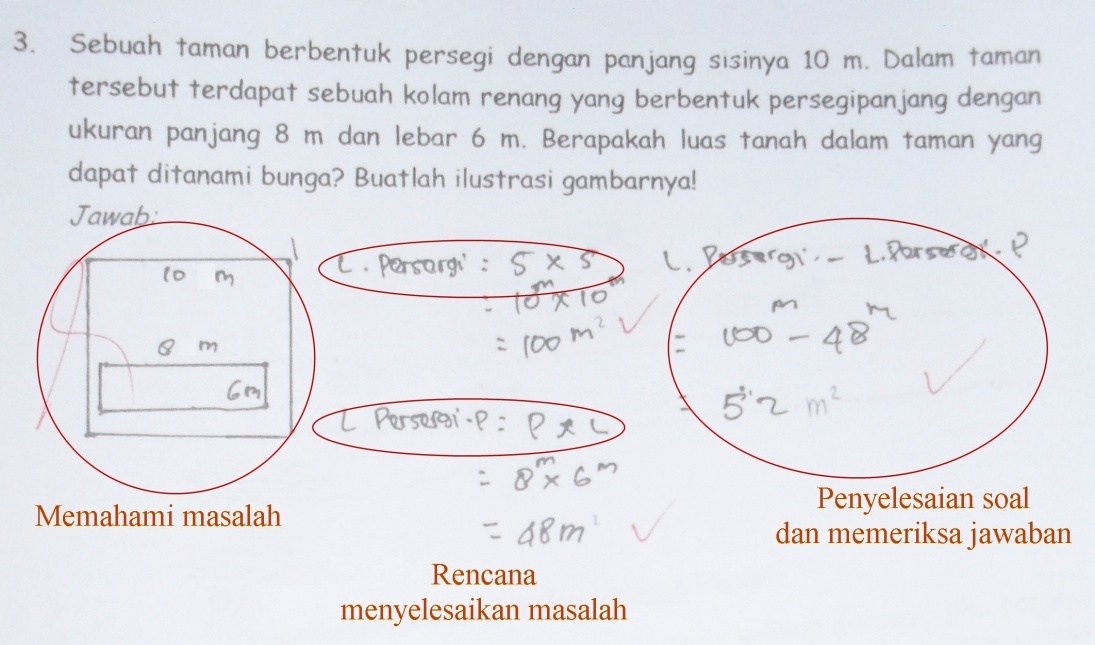 3. Sebuah taman berbentuk persegi dengan panjang sisinya 10 m. Dalam taman
tersebut terdapat sebuah kolam renang yang berbentuk persegipanjang dengan
ukuran panjang 8 m dan lebar 6 m. Berapakah luas tanah dalam taman yang
dapat ditanami bunga? Buatlah ilustrasi gambarnya!
Jawab:
10 m
8 m
6m
Memahami masalah
L. Persergi : S x S
= 10 m x 10 m
= 100 m²
L Persergi.P = P x L
= 8 m x 6 m
= 48 m²
Rencana
menyelesaikan masalah
L. Persergi - L.Persergi.P
= 100 m - 48 m
= 52 m²
Penyelesaian soal
dan memeriksa jawaban